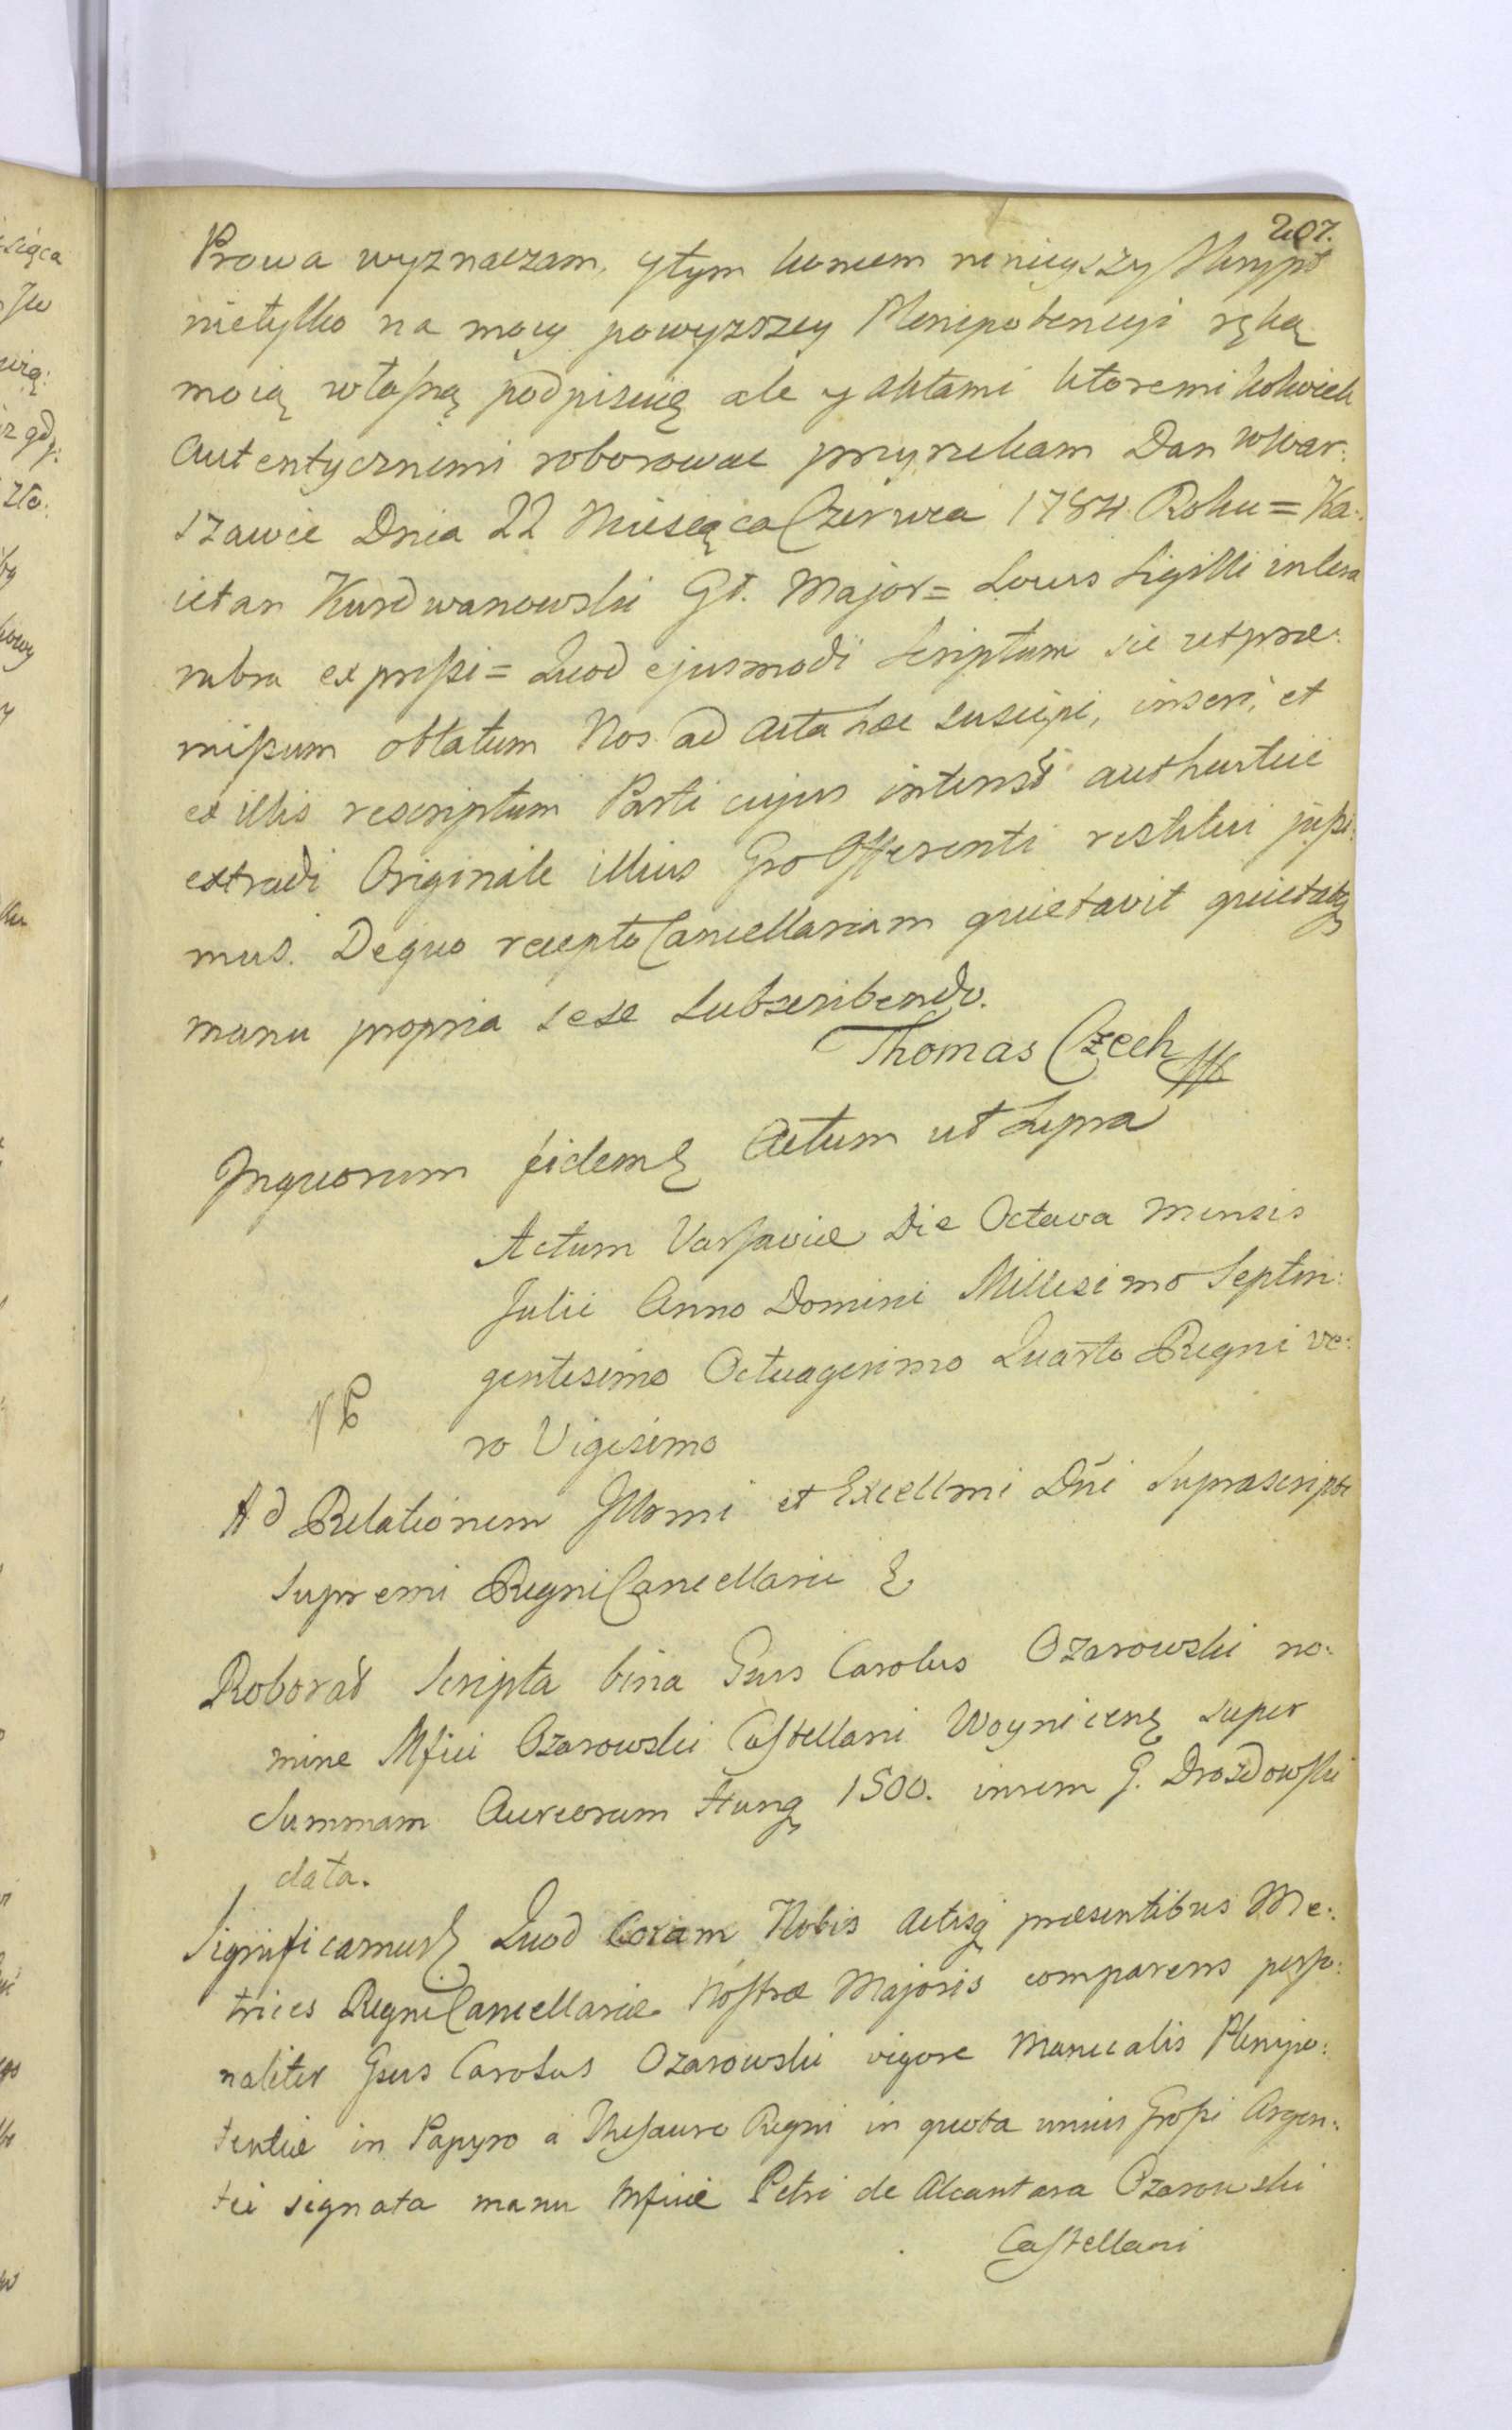 207.
Prawa wyznaczam, ytym koncem ninieyszy Skrypt
nietylko na mocy powyzszey Plenipotencyi ręką
moią własną podpisuię ale y aktami ktoremi kolwiek
autentycznemi roborowac przyrzekam Dan wWar:
szawie Dnia 22 Miesiąca Czerwca 1784 Roku = Ka:
ietan Kurdwanowski Gł. Major = Locus Sigilli in cera
rubra expressi = Quod ejusmodi Scriptum sic ut præ:
missum oblatum Nos ad Acta hæc suscipi, inseri, et
ex illis rescriptum Parti cujus interest authentice
extradi Originale illius Gso Offerenti restitui jussi:
mus. De quo recepto Cancellariam quietavit quietatq
manu propria sese Subscribendo.
Thomas Czech
Inquorum fidem Actum ut Supra
Actum Varsaviæ Die Octava Mensis
Julii Anno Domini Millesimo Septin:
gentesimo Octuagesimo Quarto Regni ve:
ro Vigesimo
Ad Relationem Illmi et Excellmi Dñi Suprascripti
Supremi Regni Cancellarii
Roborat Scripta bina Gsus Carolus Ozarowski no:
mine Mfici Ozarowski Castellani Woynicens super
Summam Aureorum Hung 1500. inrem G. Drozdowski
data.
Significamus Quod Coram Nobis Actisq præsentibus Me:
trices Regni Cancellariæ Nostræ Majoris comparens perso:
naliter Gsus Carolus Ozarowski vigore Manualis Plenipo:
tentiæ in Papyro a Thesauro Regni in quota unius Grossi Argen:
tei signata manu Mfici Petri de Alcantara Ozarowski
Castellani